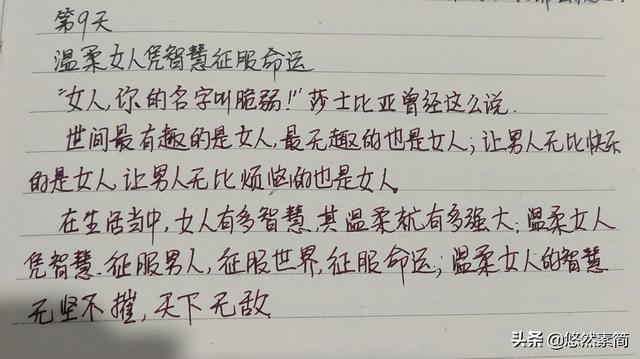 第9天
温柔女人凭智慧征服命运
"女人,你的名字叫脆弱!"莎士比亚曾经这么说.
世间最有趣的是女人,最无趣的也是女人;让男人无比快乐
的是女人,让男人无比烦恼的也是女人。
在生活当中,女人有多智慧,其温柔就有多强大;温柔女人
凭智慧.征服男人,征服世界,征服命运;温柔女人的智慧
无坚不摧,天下无敌.
头条 @悠然素简